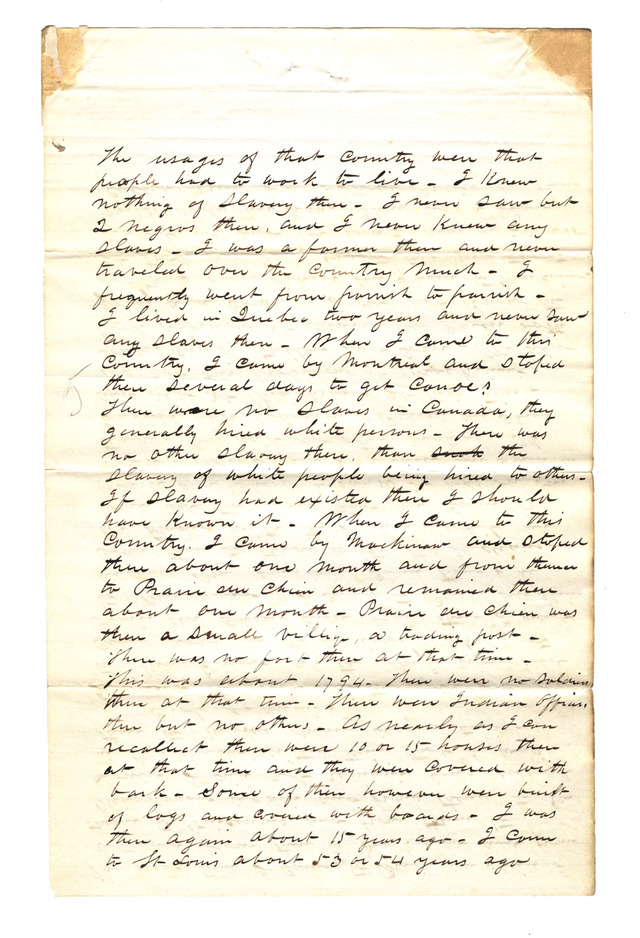 The usages of that Country were that
people had to work to live - I Knew
nothing of Slavery then - I never saw but
2 Negros then, and I never Knew any
slaves - I was a farmer then and never
traveled over the Country Much - I
frequently went from parish to parish -
I lived in Quebec two years and never saw
any slaves then - When I came to this
Country, I came by Montreal and stoped
there several days to get Canoes
There were no slaves in Canada, they
generally hired white persons - There was
no other slavery there, than such the
slavery of white people being hired to others -
If slavery had existed there I should
have Known it - When I came to this
Country. I came by Mackinaw and stoped
there about one Month and from thence
to Prairie du Chien and remained there
about one Month - Prairie du Chien was
then a small village, a trading post -
There was no fort there at that time -
This was about 1794 - There were no soldiers
there at that time - There were Indian Officers
there but no others - As nearly as I can
recollect there were 10 or 15 houses there
at that time and they were Covered with
bark - Some of them however were built
of logs and covered with boards - I was
there again about 15 years ago - I came
to St Louis about 53 or 54 years ago